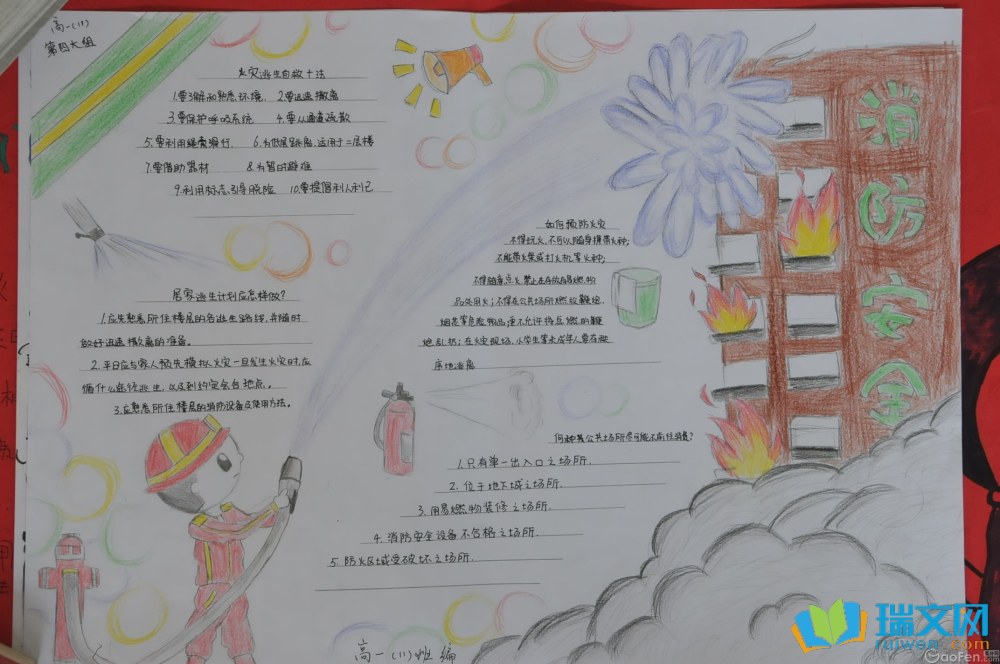 高一(11)
第四大组
火灾逃生自救十法
1.要了解和熟悉环境. 2.要迅速撤离
3.要保护呼吸系统 4.要从通道疏散
5.要利用绳索滑行. 6.为低层跳离,适用于二层楼
7.要借助器材 8.为暂时避难
9.利用标志,引导脱险 10.要提倡利人利己
居家逃生计划应怎样做?
1.应先熟悉所住楼层的各逃生路线,并随时
做好迅速撤离的准备。
2.平日应与家人预先模拟火灾一旦发生火灾时,应
循什么途径逃生,以及到约定会合地点。
3.应熟悉所住楼层的消防设备及使用方法。
如何预防火灾
不得玩火,不可以随身携带火种;
不能带火柴或打火机等火种;
不得随意点火,禁止在存放易燃
品处用火;不得在公共场所燃放鞭炮,
更不允许将点燃的鞭
炮乱扔;在火灾现场,小学生等未成年人要在
离
何种类公共场所尽可能不前往消费?
1.只有单一出入口之场所.
2.位于地下域之场所.
3.用易燃物装修之场所.
4.消防安全设备不合格之场所.
5.防火区域受破坏之场所.
消
防
安
全
高一(11)班编
瑞文网
ruiwen.com
GaoFen.com